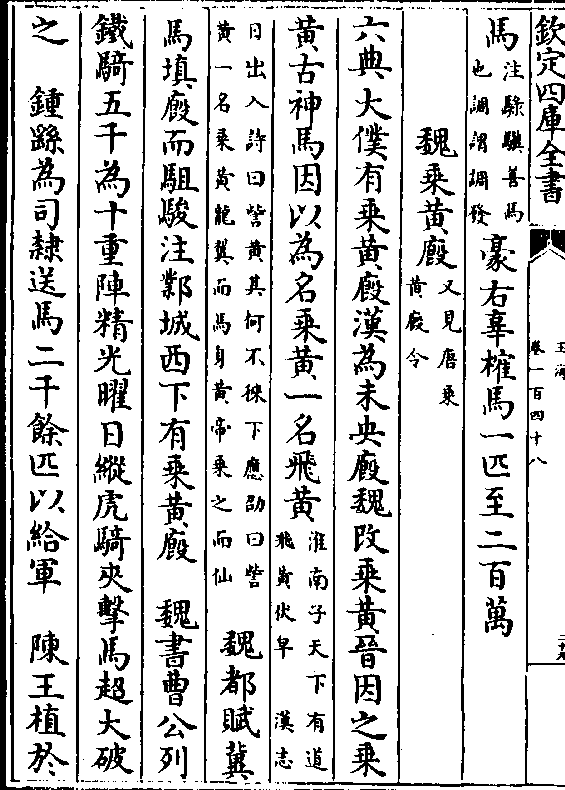 欽定四庫全書
玉海
卷一百四十八
馬
注騄驥善馬
也調謂調發
豪右辜榷馬一匹至二百萬
魏乘黃廄
又見唐乘
黃廄令
六典大僕有乘黃廄漢為未央廄魏改乘黃晉因之乘
黃古神馬因以為名乘黃一名飛黃
淮南子天下有道
飛黃伏皁
漢志
日出入詩曰訾黃其何不徠下應劭曰訾
黃一名乘黃龍翼而馬身黃帝乘之而仙
魏都賦冀
馬填廄而駔駿注鄴城西下有乘黃廄
魏書曹公列
鐵騎五千為十重陣精光曜日縱虎騎夾擊馬超大破
之
鍾繇為司隸送馬二千餘匹以給軍
陳王植於